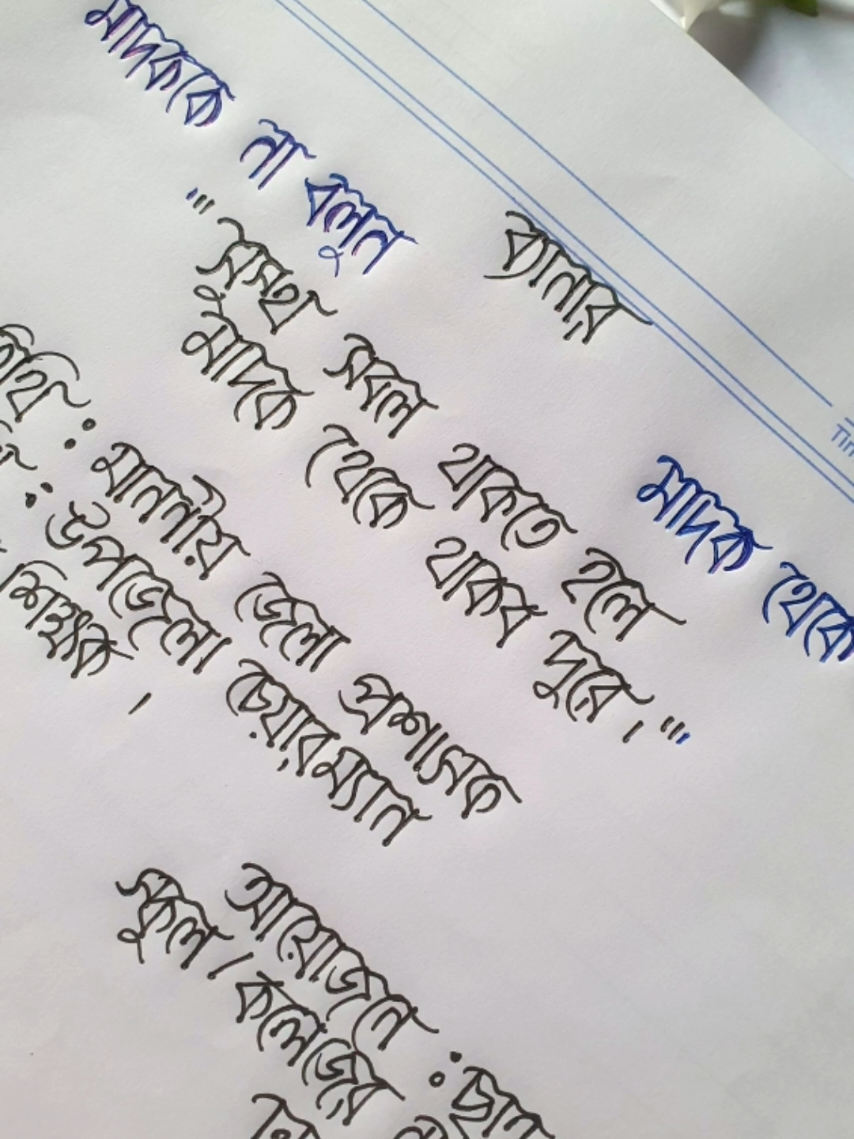 ব্যানার
মাদককে না বলুন
মাদক থেকে
"সুস্থ সবল থাকতে হলে
মাদক থেকে থাকব দুরে।"
: মাননীয় জেলা প্রশাসক
: উপজেলা চেয়ারম্যান
শিক্ষক।
আয়োজনে :
স্কুল / কলেজের